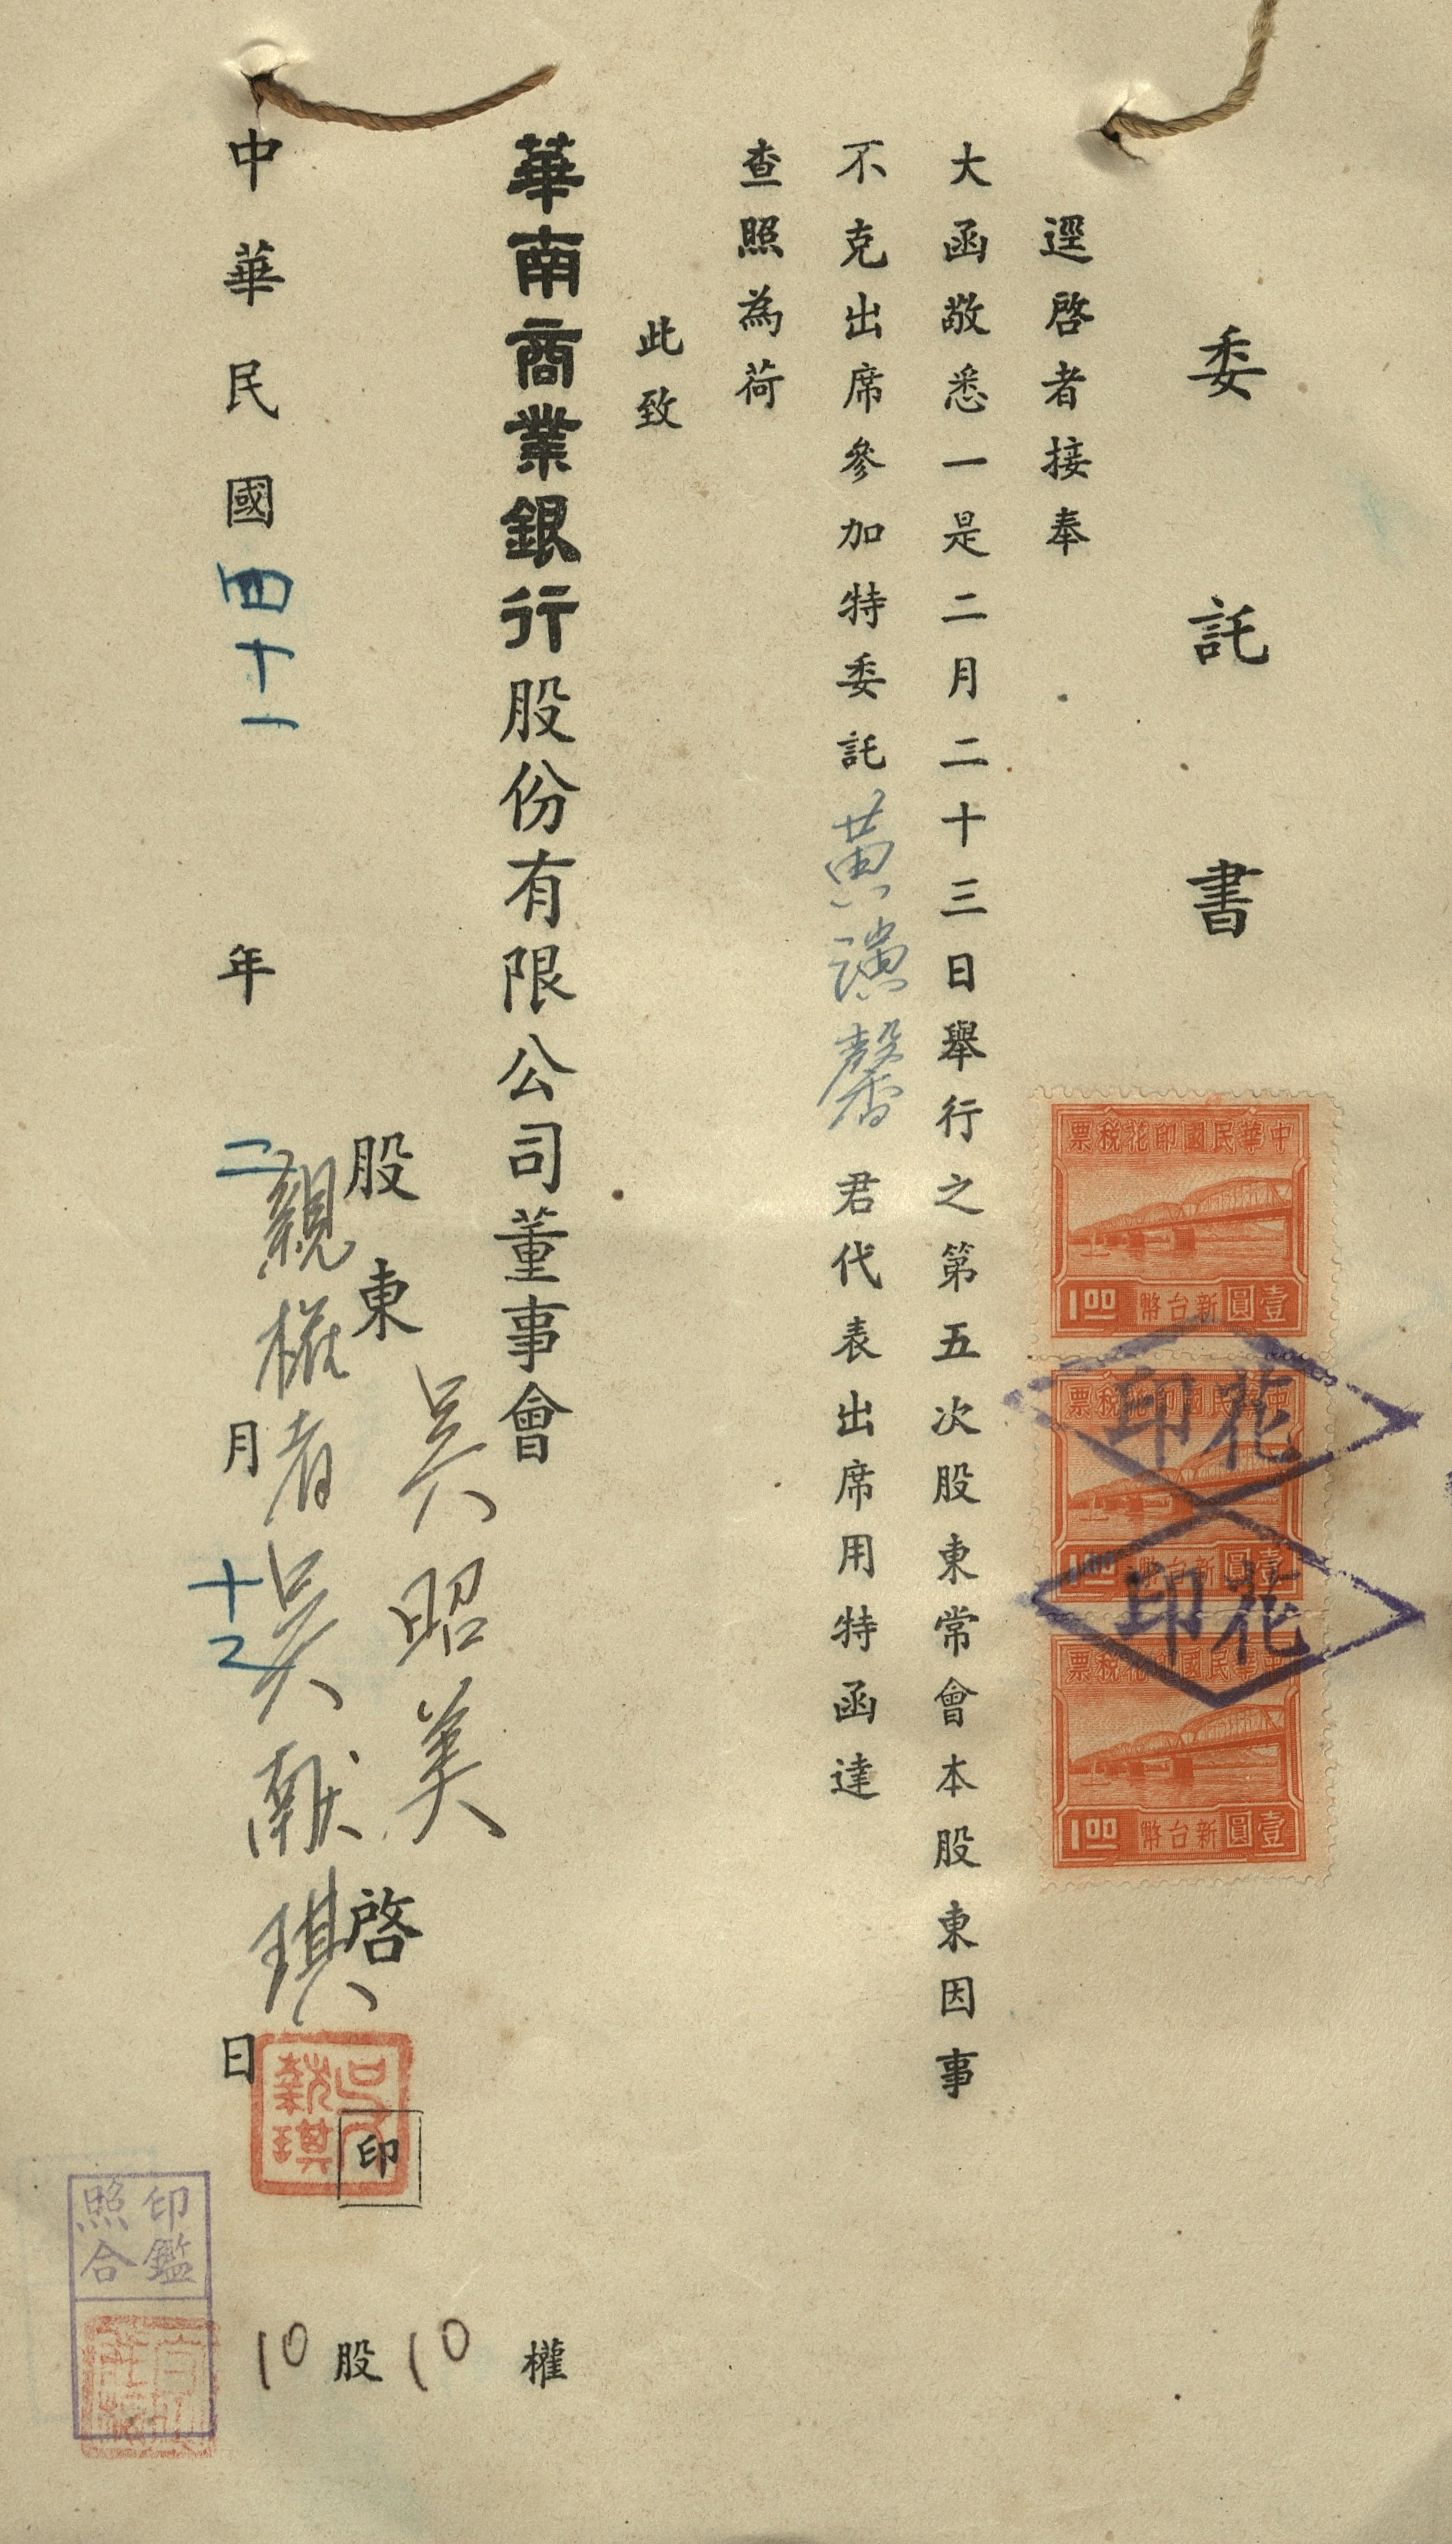 委託書
逕啓者接奉
大函敬悉一是二月二十三日舉行之第五次股東常會本股東因事
不克出席參加特委託黃馨君代表出席用特函達
查照為荷
此致
華南商業銀行股份有限公司董事會
股東吳昭美啓
親權者吳献琪
印
中華民國四十一年二月十二日
10股10權
中華民國印花稅票
1.00 新台幣壹圓
中華民國印花稅票
1.00 新台幣壹圓
中華民國印花稅票
1.00 新台幣壹圓
花印
花印
印鑑
照合